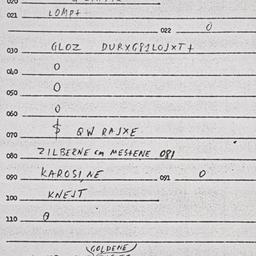 020
021 LOMP+
022 0
030 GLOZ DURXG81LOJXT+
040 0
050 0
060 0
070 $ QW RAJXE
080 ZILBERNE cm MESTENE 081
090 KAROSI,NE 091 0
100 KNEJT
110 0
GOLDENE